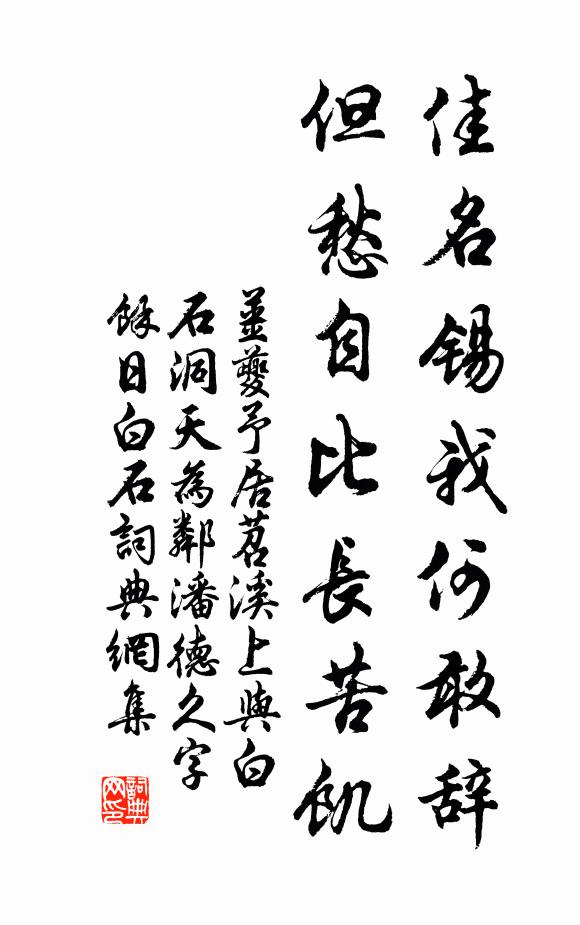 佳名锡我何敢辞
但愁自比長苦飢
姜夔予居苕溪上與白
石洞天為鄰潘德久字
餘曰白石詞典網集
詞典网印